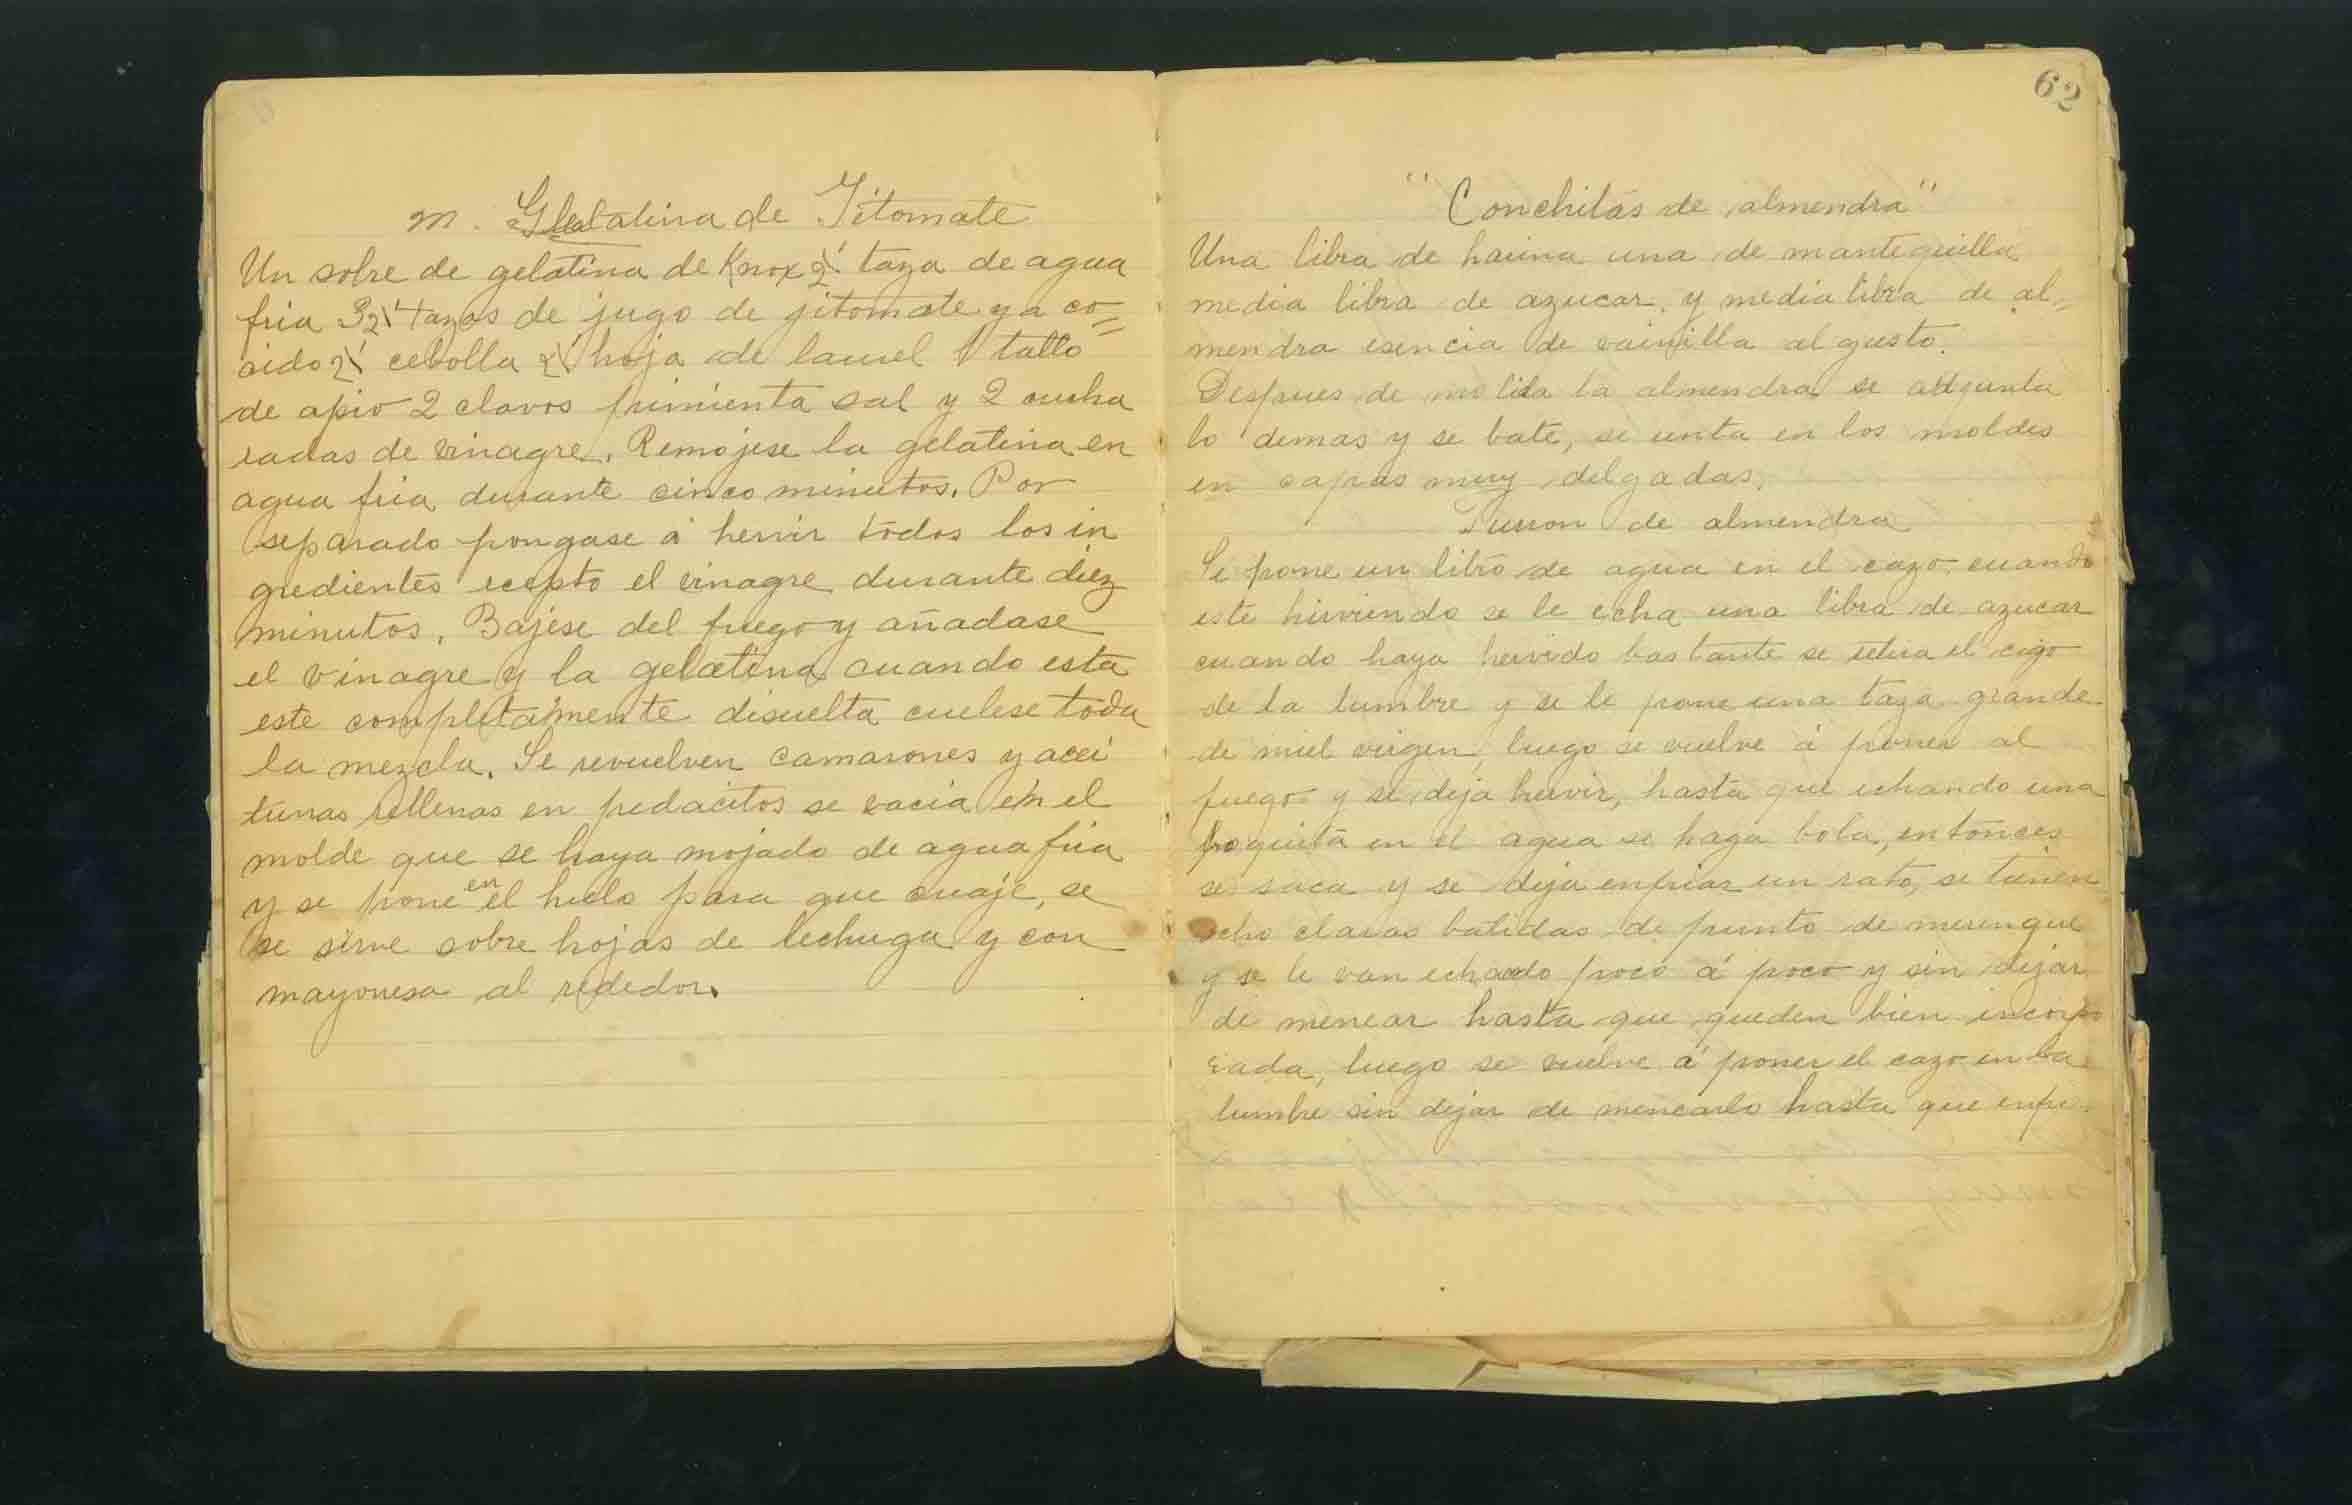 m. Gelatina de Jitomate
Un sobre de gelatina de Knox 1/2 taza de agua
fria 3 1/2 tazas de jugo de jitomate ya co=
cido 1/2 cebolla 1/2 hoja de laurel 1 tallo
de apio 2 clavos pimienta sal y 2 cucha
radas de vinagre. Remojese la gelatina en
agua fria durante cinco minutos. Por
separado pongase á hervir todos los in
gredientes ecepto el vinagre durante diez
minutos. Bajese del fuego y añadase
el vinagre y la gelatina cuando esta
este completamente disuelta cuelese toda
la mezcla. Se revuelven camarones y acei
tunas rellenas en pedacitos se vacia en el
molde que se haya mojado de agua fria
y se pone en el hielo para que cuaje, se
se sirve sobre hojas de lechuga y con
mayonesa al rededor.
62
"Conchitas de almendra"
Una libra de harina una de mantequilla
media libra de azucar, y media libra de al=
mendra esencia de vainilla al gusto.
Despues de molida la almendra se adjunta
lo demas y se bate, se unta en los moldes
en capas muy delgadas.
Turron de almendra
Se pone un litro de agua en el cazo cuando
este hirviendo se le echa una libra de azucar
cuando haya hervido bastante se retira el cazo
de la lumbre y se le pone una taza grande
de miel virgen, luego se vuelve á poner al
fuego y se deja hervir, hasta que echando una
poquita en el agua se haga bola, entonces
se saca y se deja enfriar un rato, se tienen
ocho claras batidas de punto de merengue
y se le van echando poco á poco y sin dejar
de menear hasta que queden bien incorpo
rada, luego se vuelve á poner el cazo en la
lumbre sin dejar de menearlo hasta que enpe